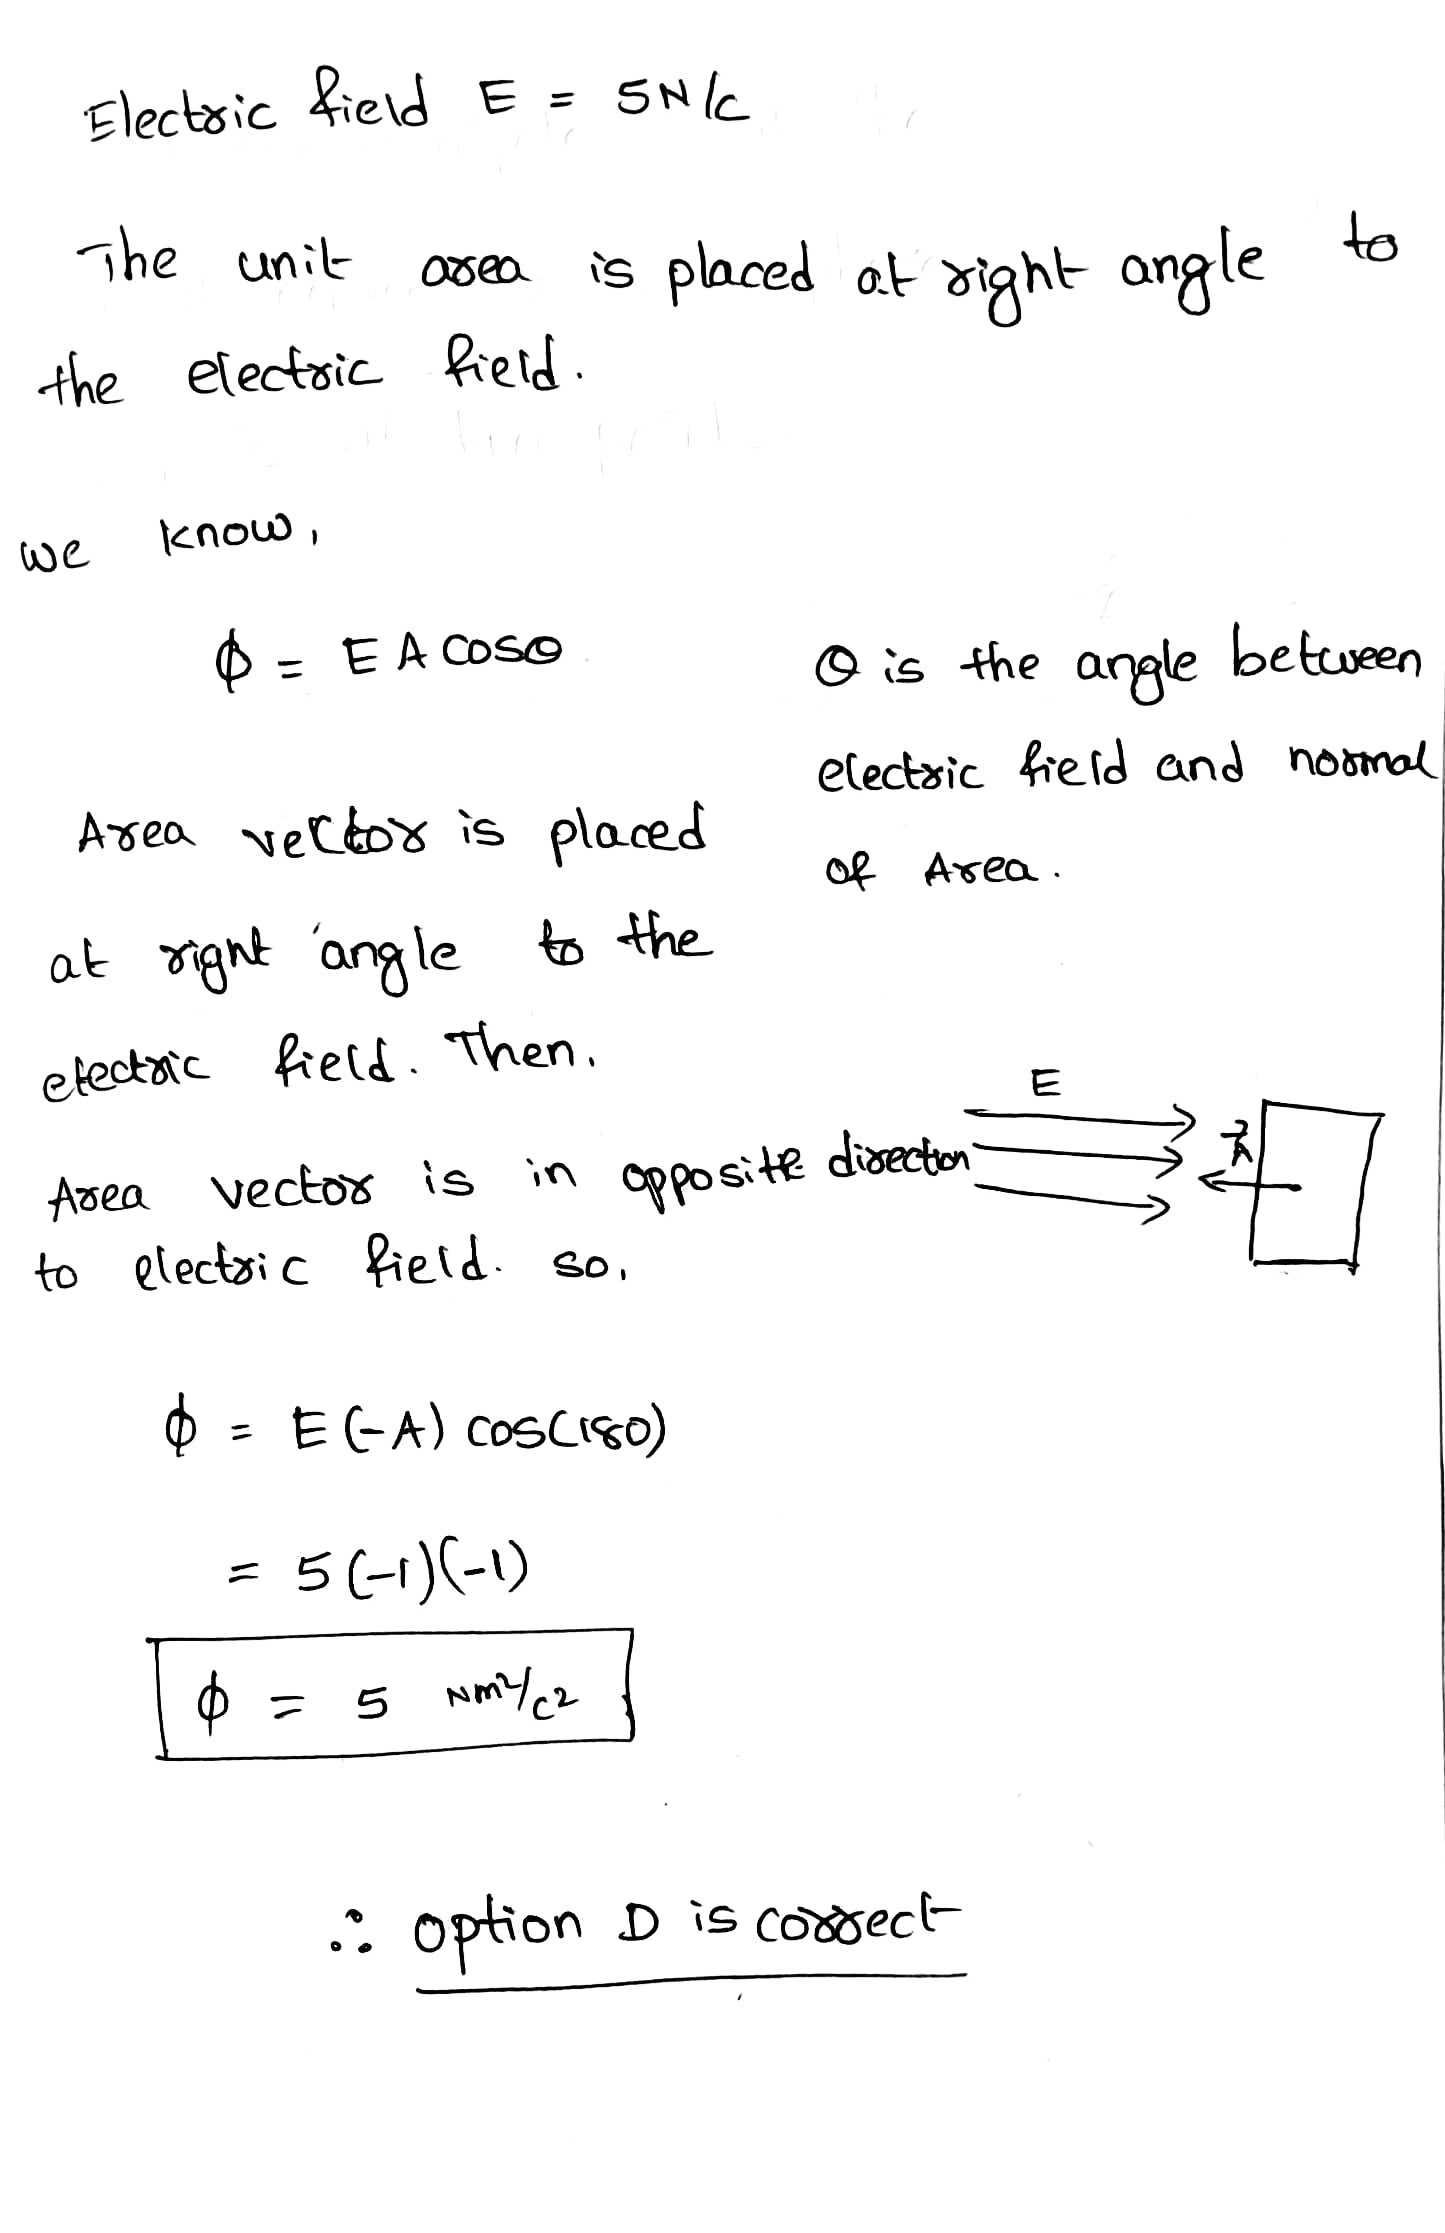 Electric field E = 5N/C
The unit area is placed at right angle to
the electric field.
we know,
ϕ = E A cosθ
θ is the angle between
electric field and normal
of Area.
Area vector is placed
at right angle to the
electric field. Then,
E
A⃗
Area vector is in opposite direction
to electric field. so,
ϕ = E(-A) cos(180)
= 5(-1)(-1)
ϕ = 5 Nm²/C2
∴ option D is correct